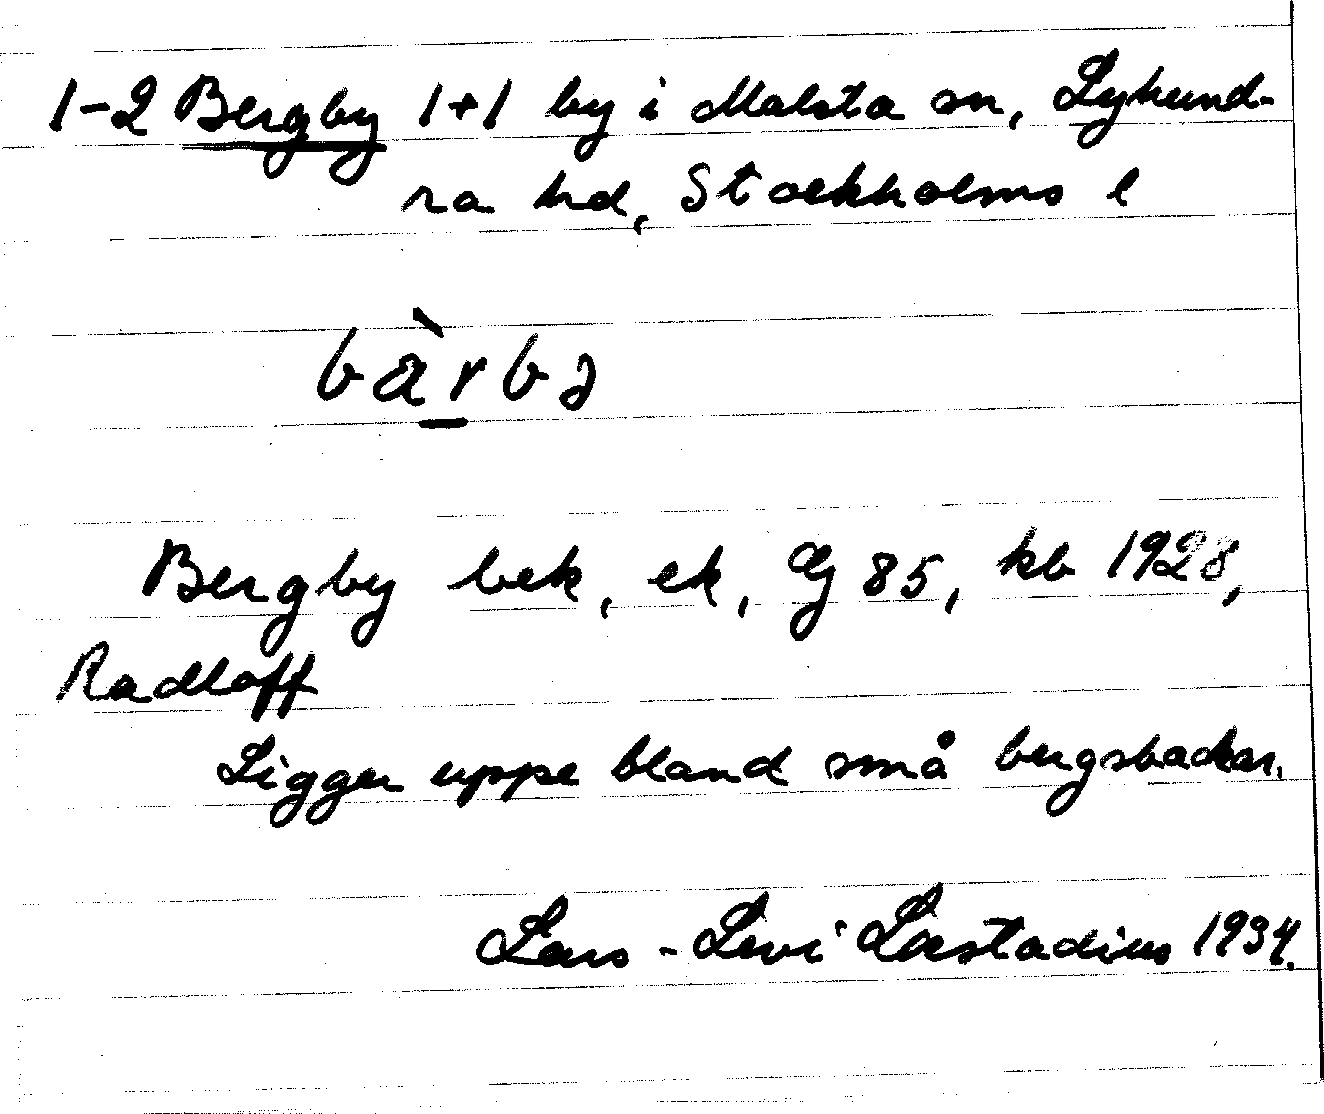 1-2 Bergby 1+1 by i Malsta sn, Lyhund-
ra hd, Stockholms l
bàrbə
Bergby bek, ek, Gj 85, kb 1928,
Radloff
Ligger uppe bland små bergsbackar.
Lars-Levi Læstadius 1934.